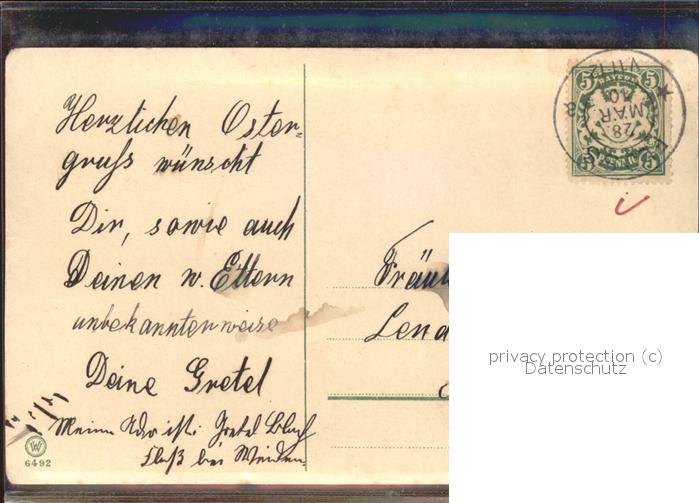 Herzlichen Oster-
gruß wünscht
Dir, sowie auch
Deinen w. Eltern
unbekannterweise
Deine Gretel
Meine Adr. ist: Gretel
Floß bei Weiden.
6492
5 BAYERN 5
5 PFENNIG 5
28.
MÄR.
10
VII-12
Fräul
Lena
privacy protection (c)
Datenschutz